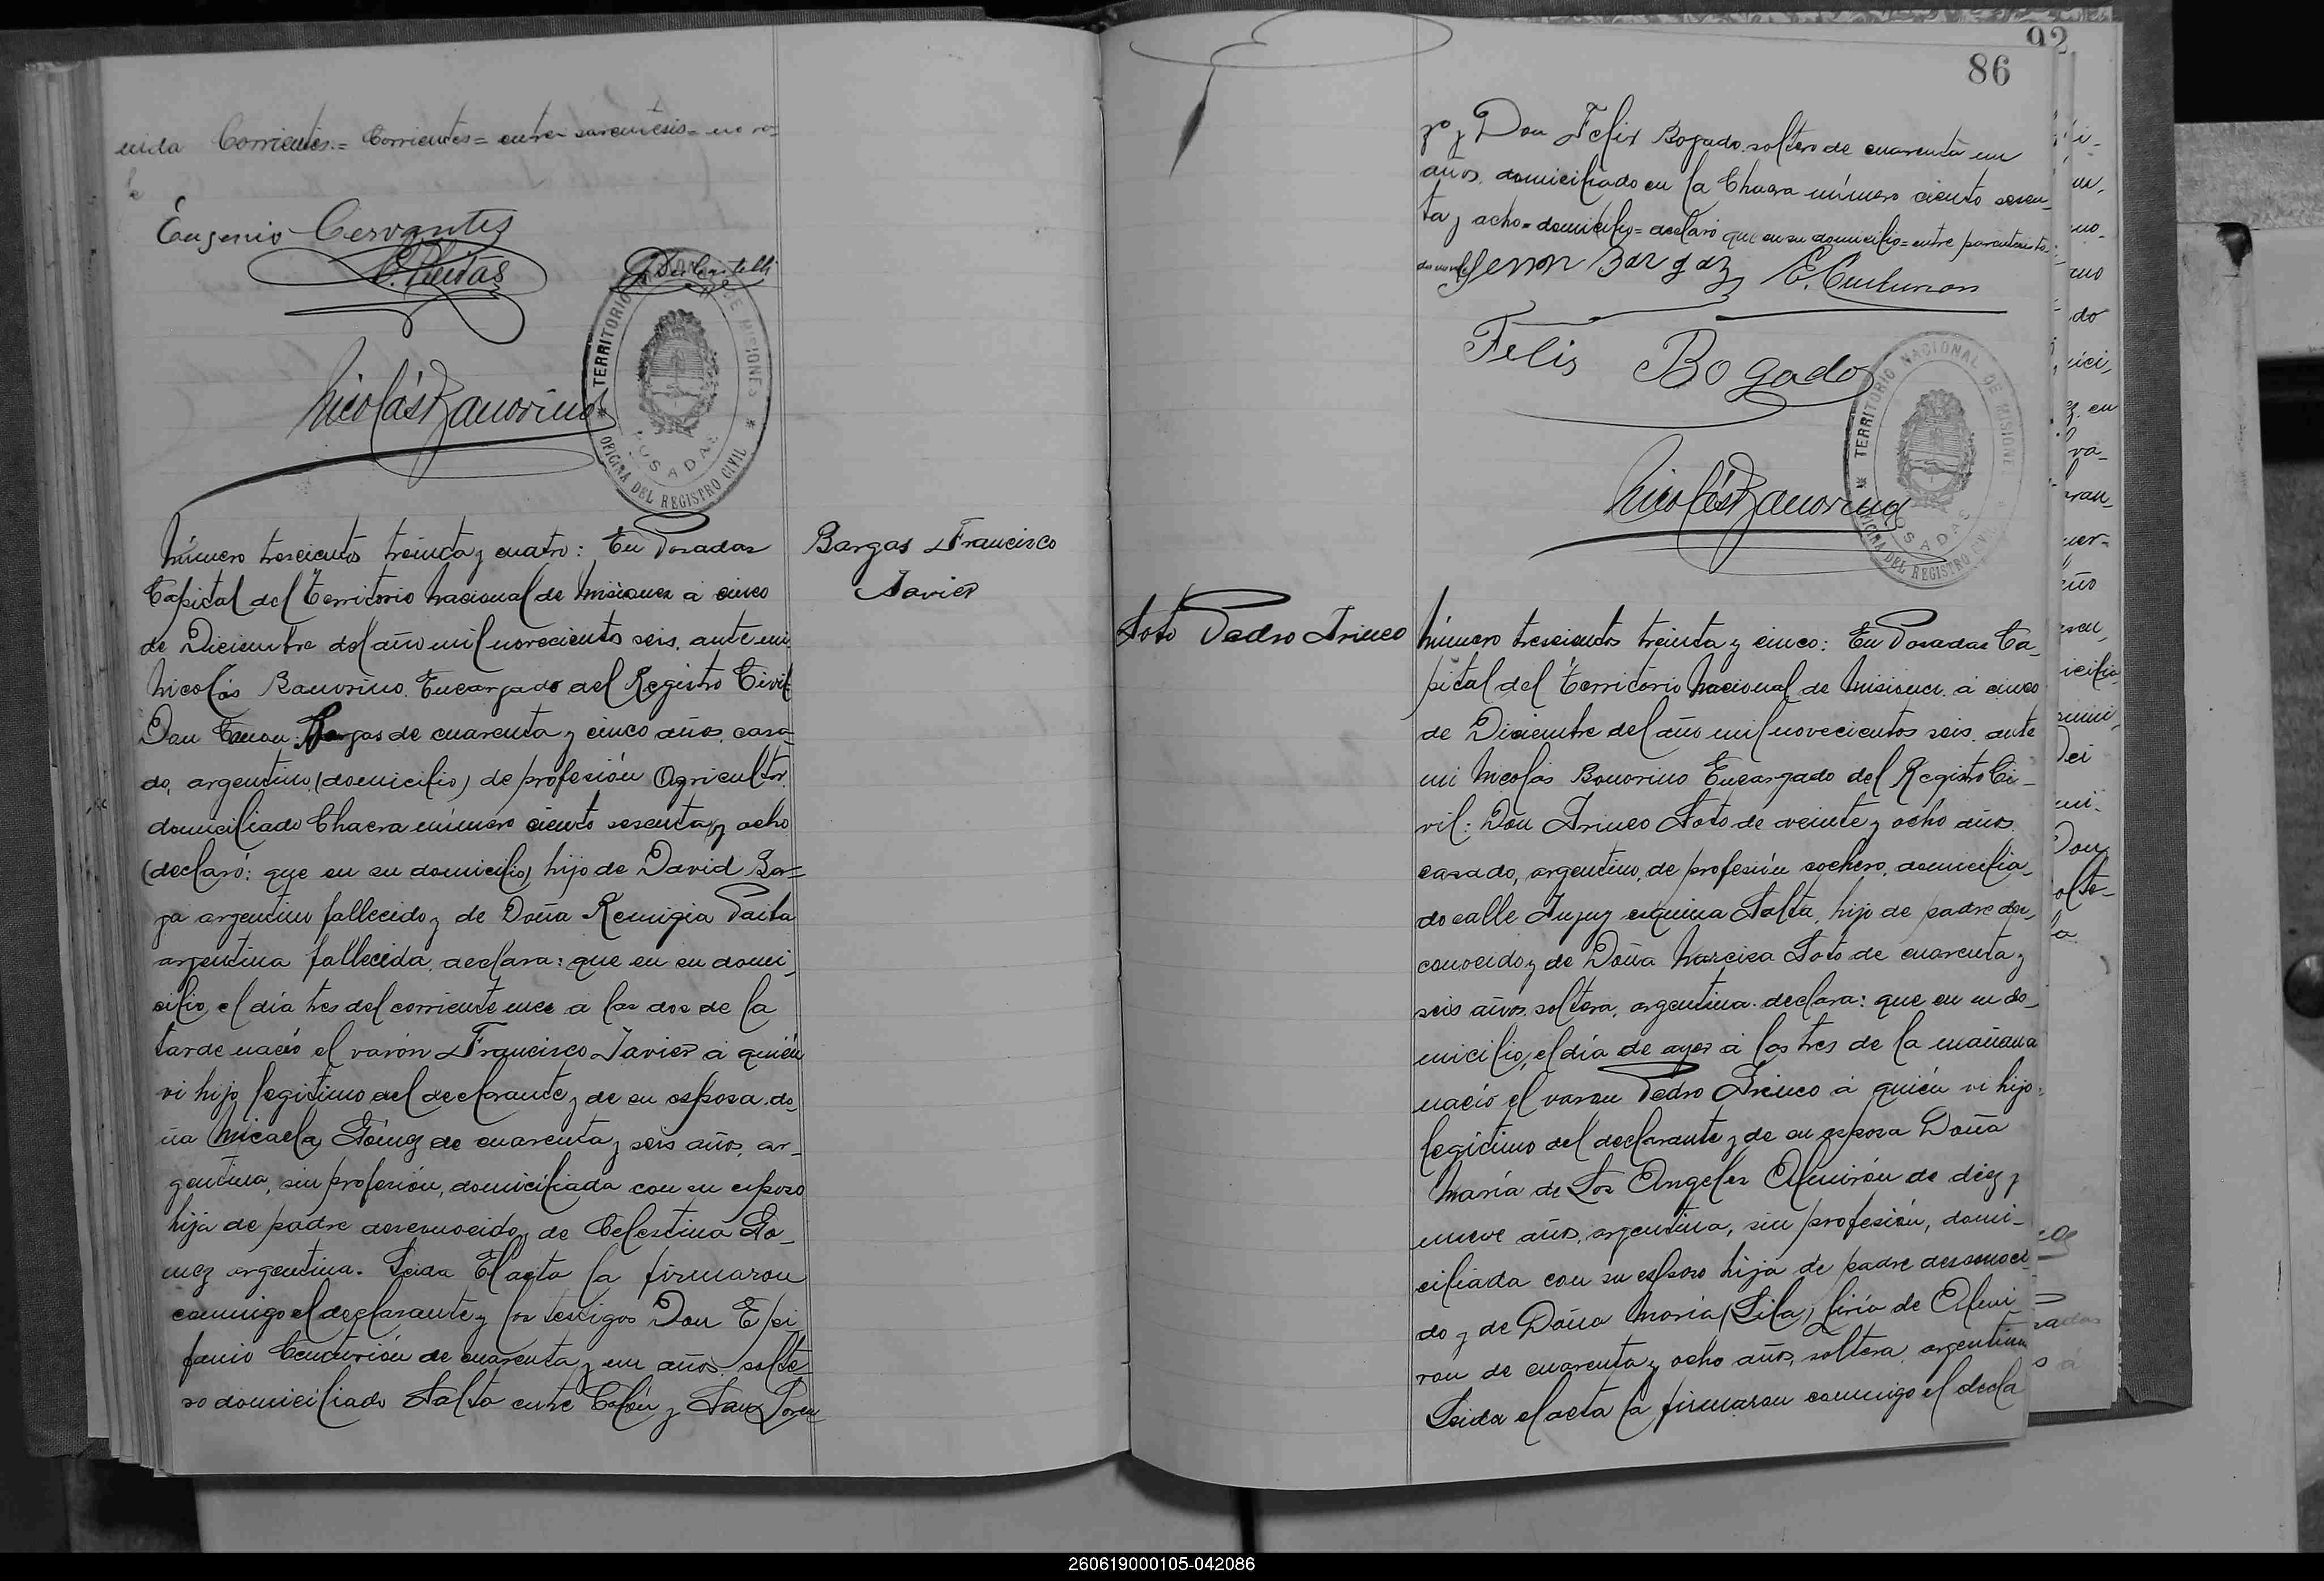 nida Corrientes.= Corrientes= entre parentesis= no va-
le
Eugenio Cervantes
TERRITORIO NACIONAL DE MISIONES
POSADAS
OFICINA DEL REGISTRO CIVIL
Nicolás Bonorino
Número trescientos treinta y cuatro: En Posadas
Capital del Territorio Nacional de Misiones a cinco
de Diciembre del año mil novecientos seis, ante mi
Nicolás Bonorino Encargado del Registro Civil
Don Bargas de cuarenta y cinco años, casa-
do, argentino, (domicilio) de profesión Agricultor
domiciliado Chacra número ciento sesenta y ocho
(declaró: que en su domicilio) hijo de David Bar=
ga argentino fallecido y de Doña Remigia
argentina fallecida, declara: que en su domi-
cilio, el día tres del corriente mes a las dos de la
tarde nació el varón Francisco Javier a quién
vi hijo legitimo del declarante y de su esposa do-
ña Micaela Gómez de cuarenta y seis años, ar-
gentina, sin profesión, domiciliada con su esposo
hija de padre desconocido y de Celestina Go-
mez argentina. Leida El acta la firmaron
conmigo el declarante y los testigos Don Epi-
fanio Centurión de cuarenta y un años solte-
ro domiciliado Salta entre Colón y San Loren
Bargas Francisco
Javier
92
86
zo y Don Felix Bogado soltero de cuarenta un
años domiciliado en la Chacra número ciento sesen-
ta y ocho= domicilio= declaró que en su domicilio= entre parentesis=
Bargaz E. Centurion
Felis Bogado
TERRITORIO NACIONAL DE MISIONES
POSADAS
OFICINA DEL REGISTRO CIVIL
Nicolás Bonorino
Soto Pedro Irineo
Número trescientos treinta y cinco: En Posadas Ca-
pital del Territorio Nacional de Misiones a cinco
de Diciembre del año mil novecientos seis, ante
mi Nicolás Bonorino Encargado del Registro Ci-
vil: Don Irineo Soto de veinte y ocho años
casado, argentino, de profesión cochero, domicilia-
do calle Jujuy esquina Salta, hijo de padre des-
conocido y de Doña Narcisa Soto de cuarenta y
seis años, soltera, argentina. declara: que en su do-
micilio, el día de ayer a las tres de la mañana
nació el varon Pedro Irineo a quién vi hijo
legitimo del declarante y de su esposa Doña
María de Los Angeles Almirón de diez y
nueve años, argentina, sin profesión, domi-
ciliada con su esposo hija de padre desconoci-
do y de Doña María (Lila) de Almi-
ron de cuarenta y ocho años, soltera, argentina
Leida el acta la firmaron conmigo el decla
260619000105-042086